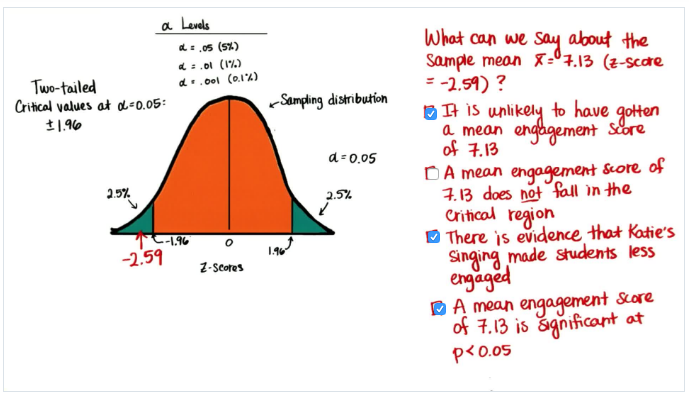 α Levels
α = .05 (5%)
α = .01 (1%)
α = .001 (0.1%)
Two-tailed
Critical values at α=0.05:
±1.96
Sampling distribution
α = 0.05
2.5%
2.5%
-1.96
0
1.96
-2.59
Z-scores
What can we say about the
Sample mean x̄ = 7.13 (z-score
= -2.59) ?
It is unlikely to have gotten
a mean engagement score
of 7.13
A mean engagement score of
7.13 does not fall in the
critical region
There is evidence that Katie's
singing made students less
engaged
A mean engagement score
of 7.13 is significant at
p< 0.05